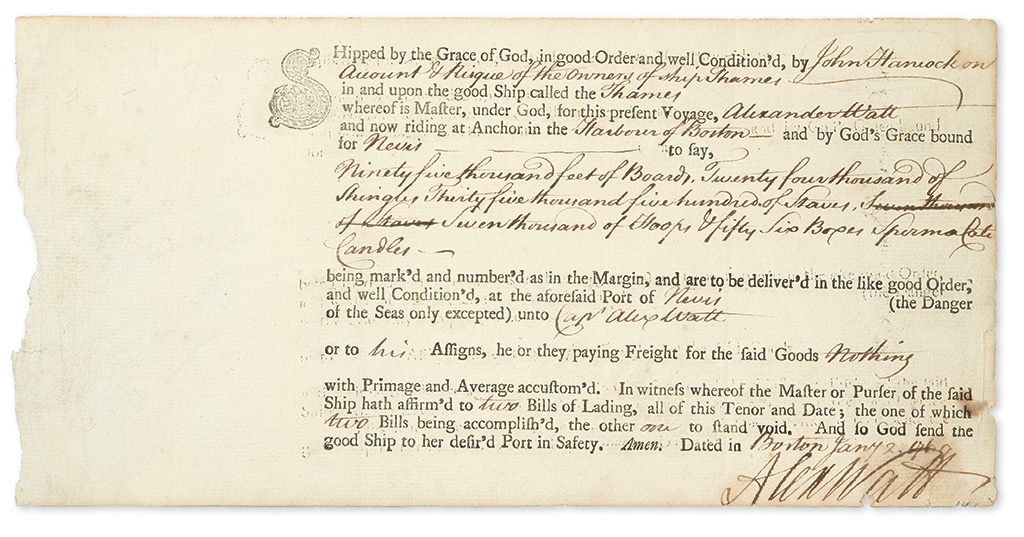 SHipped by the Grace of God, in good Order and well Condition'd, by John Hancock on
Account & Risque of the Owners of Ship Thames
in and upon the good Ship called the Thames
whereof is Master, under God, for this present Voyage, Alexander Watt
and now riding at Anchor in the Harbour of Boston — and by God's Grace bound
for Nevis — to say,
Ninety five thousand feet of Boards, Twenty four thousand of
Shingles Thirty five thousand five hundred of Staves, Seven thousand
of Staves Seven thousand of Hoops & fifty Six Boxes Sperma Cete
Candles —
being mark'd and number'd as in the Margin, and are to be deliver'd in the like good Order,
and well Condition'd, at the aforesaid Port of Nevis (the Danger
of the Seas only excepted) unto Capt Alex Watt
or to his Assigns, he or they paying Freight for the said Goods Nothing
with Primage and Average accustom'd. In witness whereof the Master or Purser of the said
Ship hath affirm'd to two Bills of Lading, all of this Tenor and Date; the one of which
two Bills being accomplish'd, the other one to stand void. And so God send the
good Ship to her desir'd Port in Safety. Amen. Dated in Boston Jany 2
Alex Watt